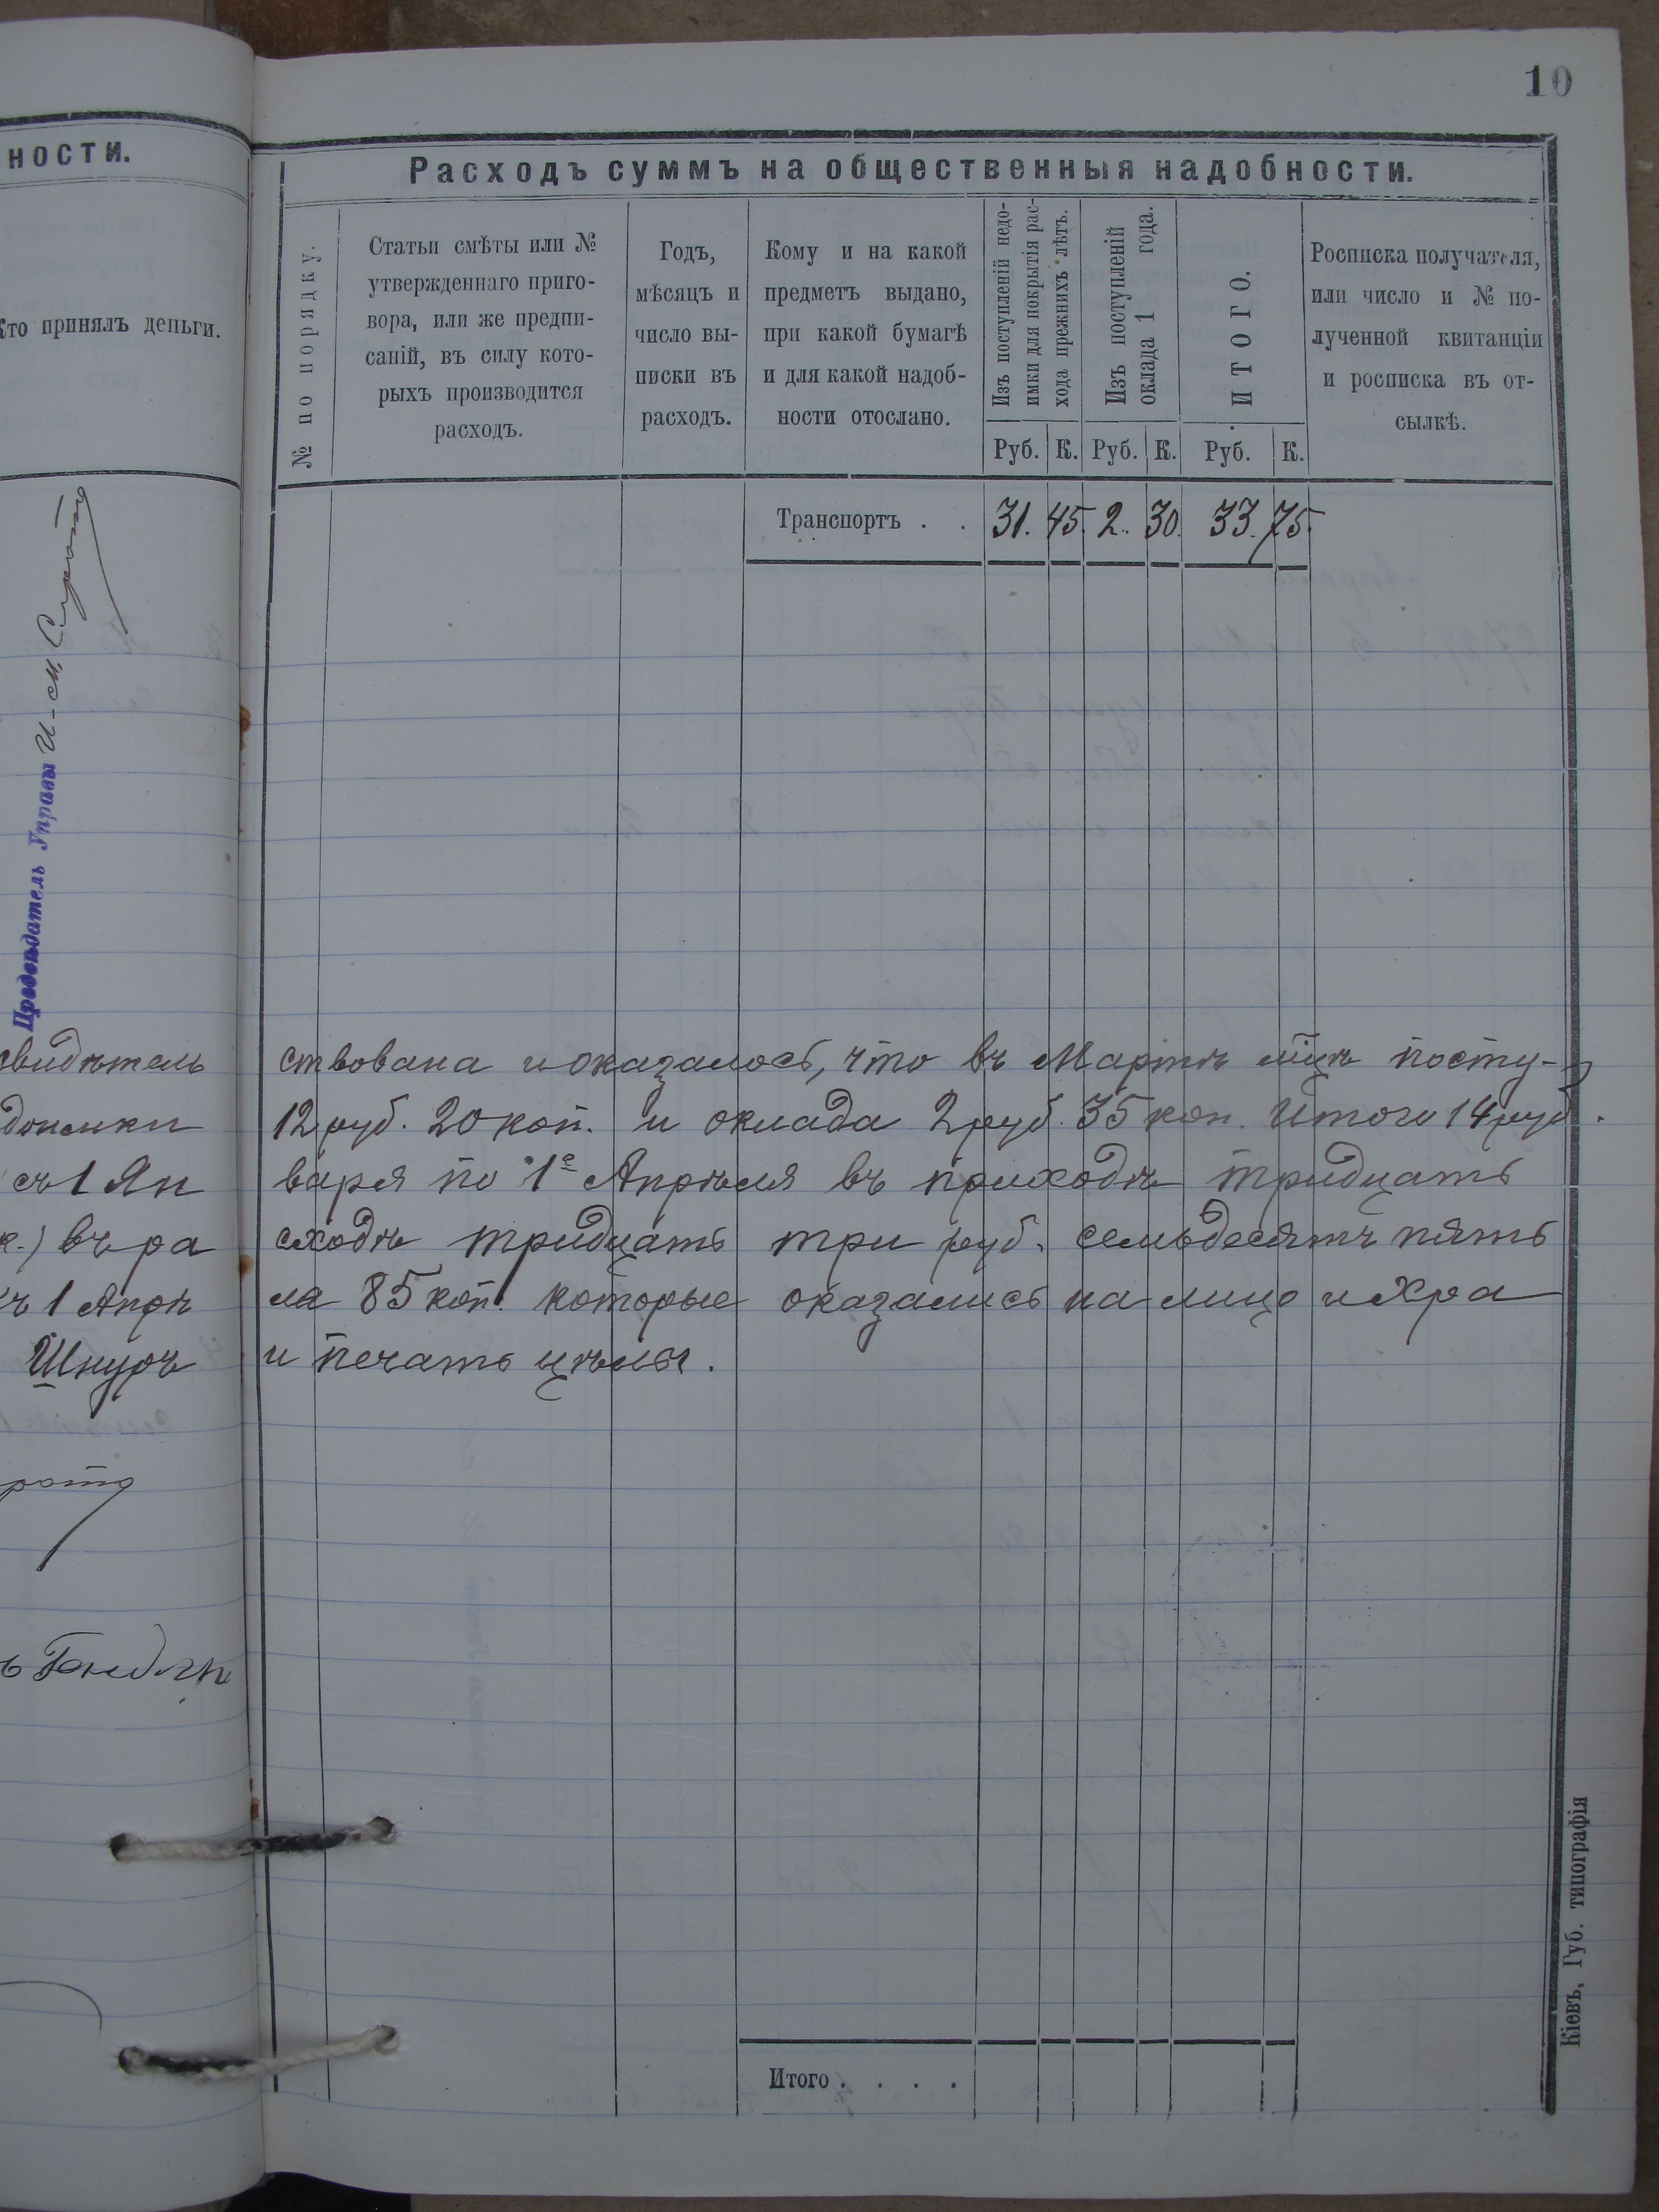 10
ности.
Кто принялъ деньги.
Предсѣдатель Управы И-М. Сирота
свидѣтель
доимки
съ 1 Ян
к.) въ ра
1 Апрѣ
Шнуръ
рота
Расходъ суммъ на общественныя надобности.
№ по порядку.
Статьи смѣты или №
утвержденнаго приго-
вора, или же предпи-
саній, въ силу кото-
рыхъ производится
расходъ.
Годъ,
мѣсяцъ и
число вы-
писки въ
расходъ.
Кому и на какой
предметъ выдано,
при какой бумагѣ
и для какой надоб-
ности отослано.
Изъ поступленій недо-
имки для покрытія рас-
хода прежнихъ лѣтъ.
Изъ поступленій
оклада 1 года.
ИТОГО.
Росписка получателя,
или число и № по-
лученной квитанціи
и росписка въ от-
сылкѣ.
Руб. К. Руб. К. Руб. К.
Транспортъ . . 31. 45. 2. 30. 33. 75.
ствована и оказалось, что въ Мартѣ мцѣ посту-
12 руб. 20 коп. и оклада 2 руб. 35 коп. Итого 14 руб.
варя по 1е Апрѣля въ приходѣ тридцать
сходѣ тридцать три руб. семьдесятъ пять
ла 85 коп. которые оказались на лицо и хра
и печать цѣлы.
Итого . . . .
Кіевъ, Губ. типографія